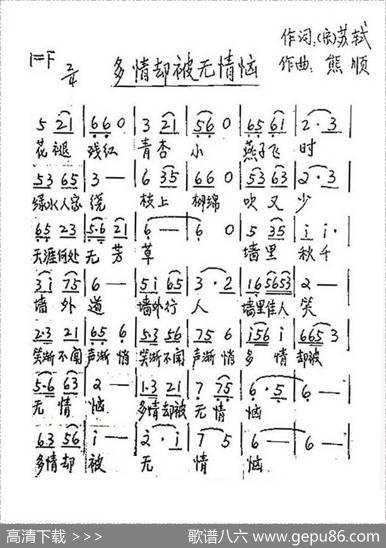 作词:(宋)苏轼
1=F 2/4 多情却被无情恼 作曲:熊顺
5 21 | 66 0 | 3 21 | 56 0 | 65 61 | 2·3 |
花褪 残红 青杏 小 燕子飞 时
53 65 | 3 — | 6 35 | 66 0 | 53 63 | 2·3 |
绿水人家 绕 枝上 柳绵 吹又 少
65 23 | 5·6 21 | 6 — | 6 0 | 5 35 | i i· |
天涯何处 无芳 草 墙里 秋千
3i 75 | 6 — | 5i 65 | 3·2 | 16 5653 | 2 — |
墙外 道 墙外行 人 墙里佳人 笑
2·3 21 | 65 6 | 53 56 | 75 6 | i56 i | 665 3 |
笑渐不闻 声渐悄 笑渐不闻 声渐悄 多情 却被
5·6 63 | 2 — | 1·3 21 | 7 75 | 6·5 | 6 — |
无情 恼 多情却被 无情 恼
63 56 | i — | 2·i | 7 5 | 6 — | 6 — |
多情却 被 无 情 恼
高清下载 >>> 歌谱八六 www.gepu86.com